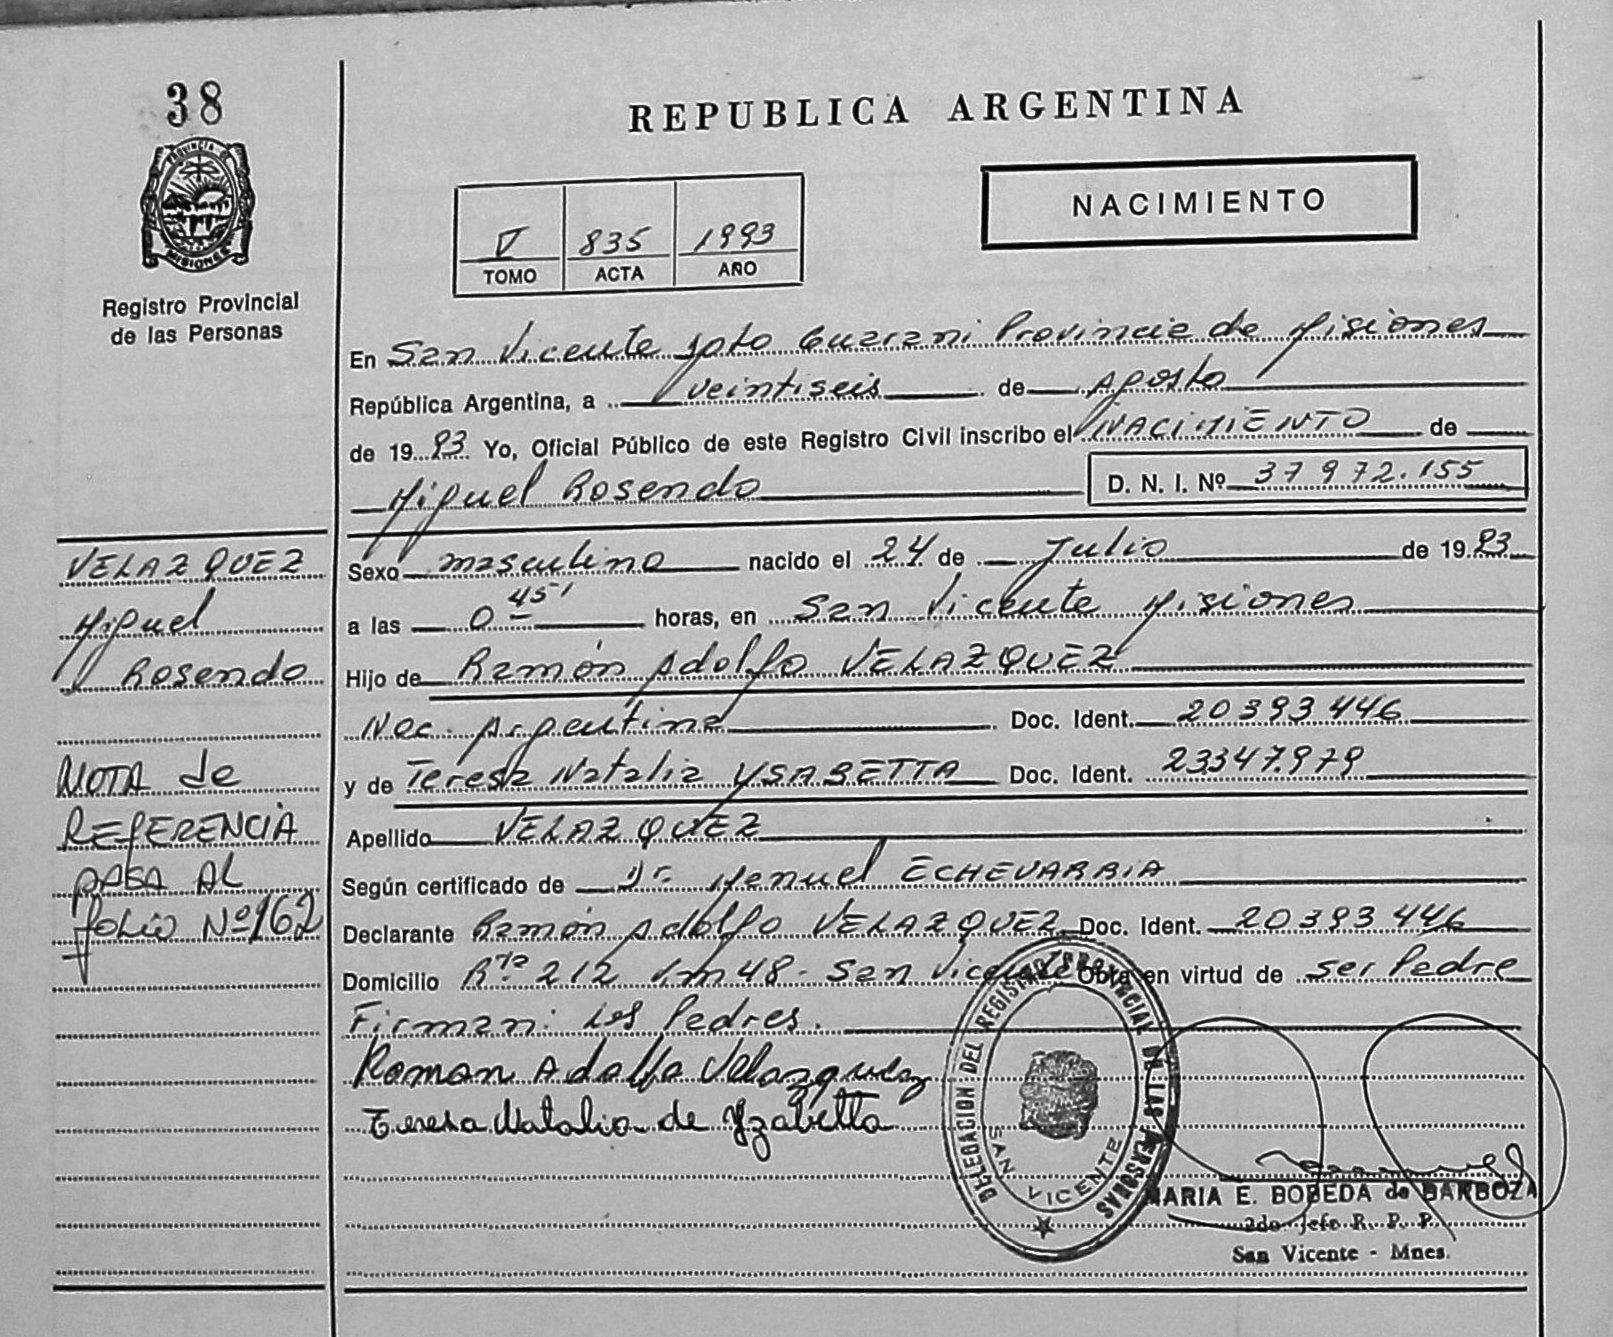 38
REPUBLICA ARGENTINA
PROVINCIA DE
MISIONES
Registro Provincial
de las Personas
V 835 1993
TOMO ACTA AÑO
NACIMIENTO
En San Vicente Dpto Guarani Provincia de Misiones
República Argentina, a veintiseis de Agosto
de 1993 Yo, Oficial Público de este Registro Civil inscribo el NACIMIENTO de
Miguel Rosendo D. N. I. Nº 37 972.155
VELAZQUEZ
Miguel
Rosendo
NOTA de
REFERENCIA
PASA AL
folio Nº 162
Sexo masculino nacido el 24 de Julio de 1993
a las 0 45 horas, en San Vicente Misiones
Hijo de Ramón Adolfo VELAZQUEZ
Nac. Argentina Doc. Ident. 20393446
y de Teresa Natalia YSABETTA Doc. Ident. 23347.979
Apellido VELAZQUEZ
Según certificado de Dr. Manuel ECHEVARRIA
Declarante Ramón Adolfo VELAZQUEZ Doc. Ident. 20393446
Domicilio Rta 212 km 48 - San Vicente Obra en virtud de ser Padre
Firman: los Padres.
Ramon Adolfo Velazquez
Teresa Natalia de Yzabetta
DELEGACION DEL REGISTRO PROVINCIAL DE LAS PERSONAS
SAN VICENTE
MARIA E. BOBEDA de BARBOZA
2do Jefe R. P. P.
San Vicente - Mnes.